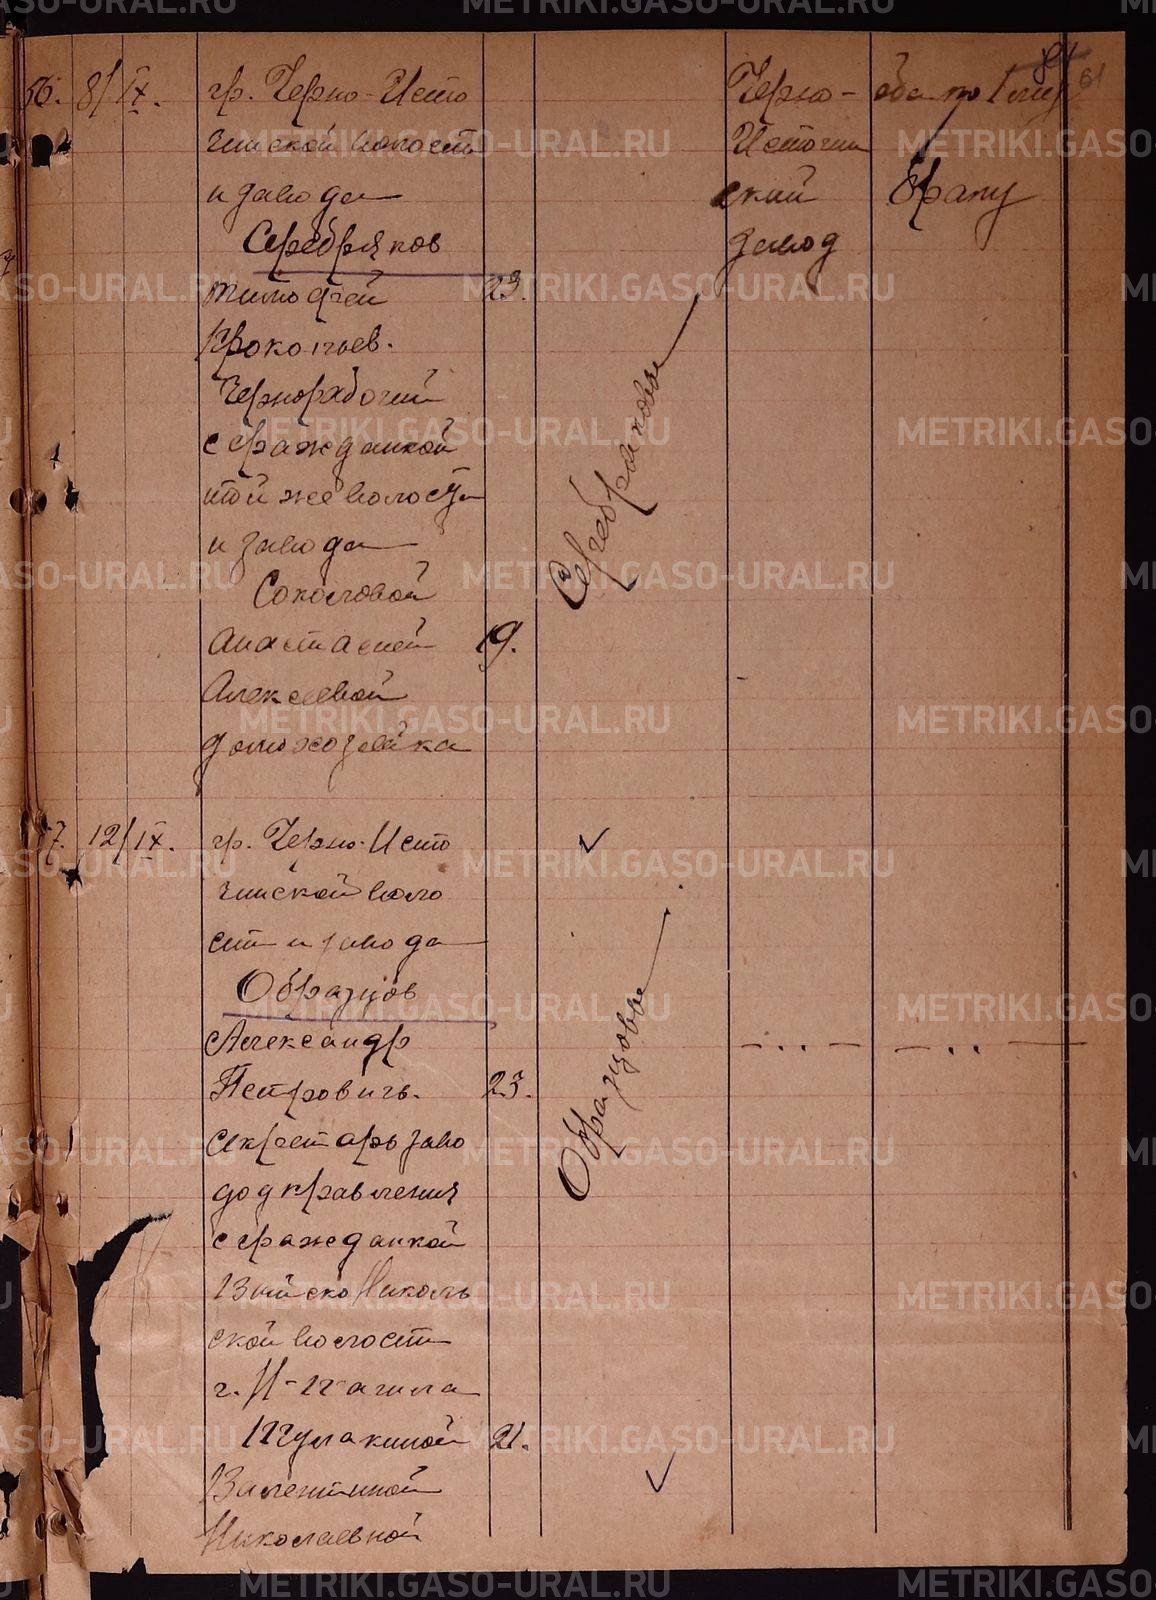 61
56. 8/IX.
гр. Черно-Исто
чинской волости
и завода
Серебряков
Тимофей 23.
Прокопьев.
Чернорабочий
с гражданкой
той же волости
и завода
Соколовой
Анастасией 19.
Алексеевой
домохозяйка
Серебряковы
Черно-
Источин
ский
завод
оба по 1 му
браку
7. 12/IX.
гр. Черно-Исто
чинской воло
сти и завода
Образцов
Александр
Петрович. 23.
секретарь заво
доуправления
с гражданкой
Выйско Николь
ской волости
г. Н-Тагила
Шулакиной 21.
Валентиной
Николаевной
Образцовы
— .. — — .. —
METRIKI.GASO-URAL.RU